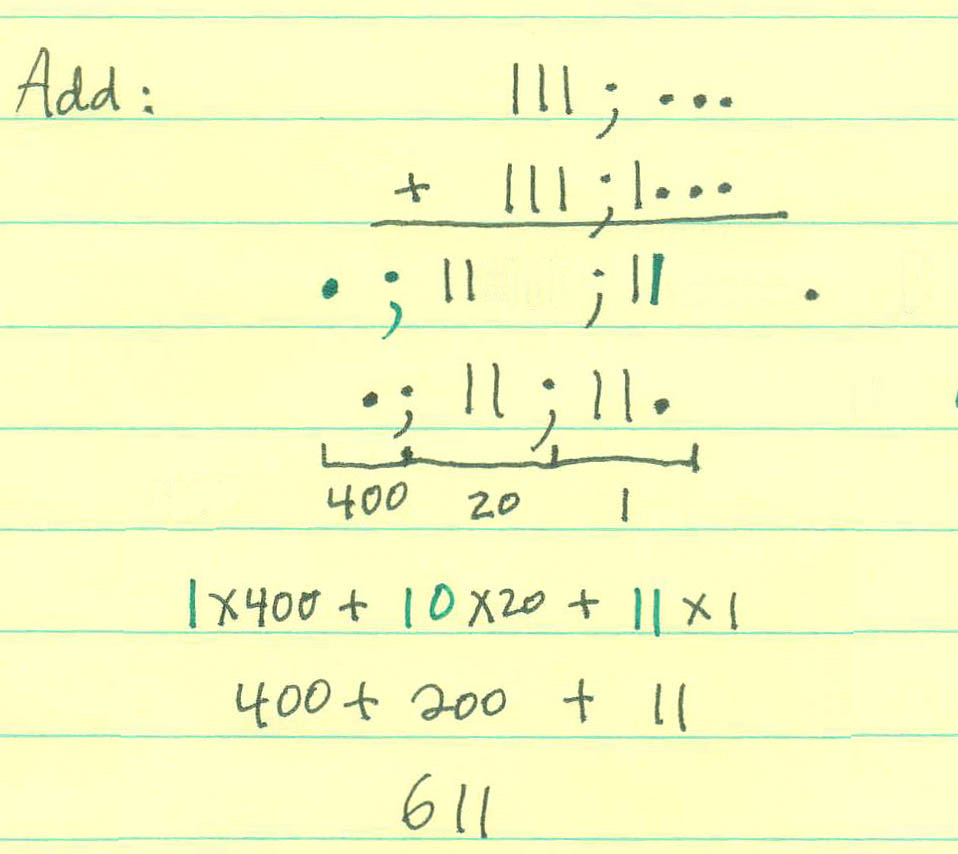 Add: ||| ; • • •
+ ||| ; | • • •
• ; || ; || •
• ; || ; || •
400 20 1
1 x 400 + 10 x 20 + 11 x 1
400 + 200 + 11
611